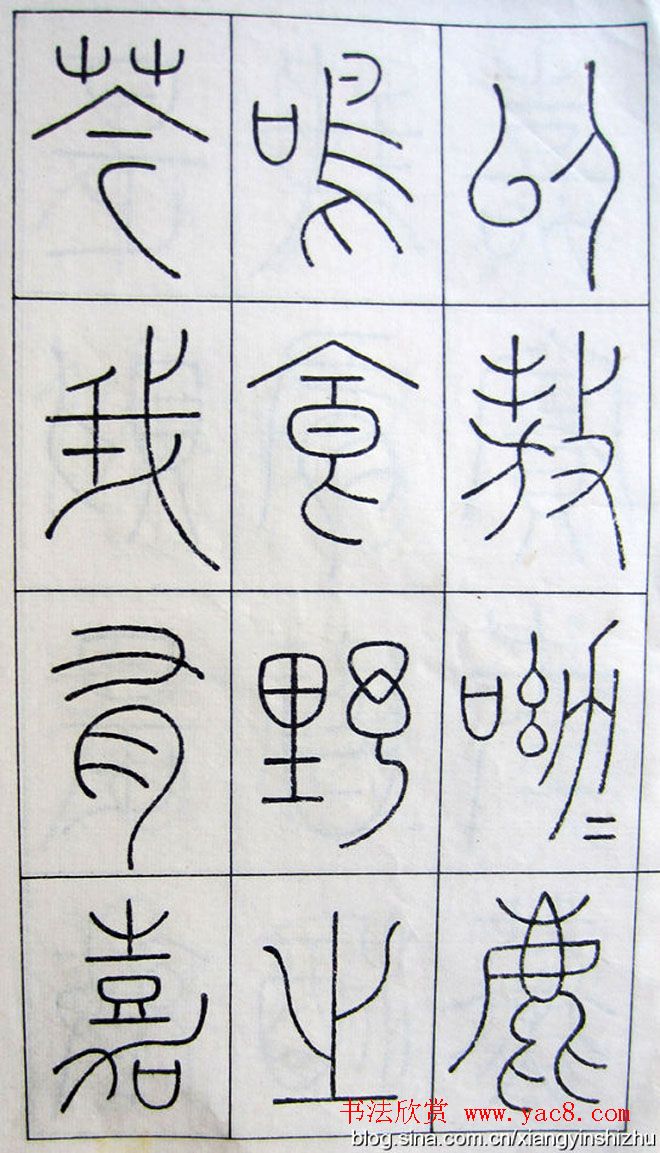 以敖呦=鹿
鳴食野之
芩我有嘉
书法欣赏 www.yac8.com
blog.sina.com.cn/xiangyinshizhu